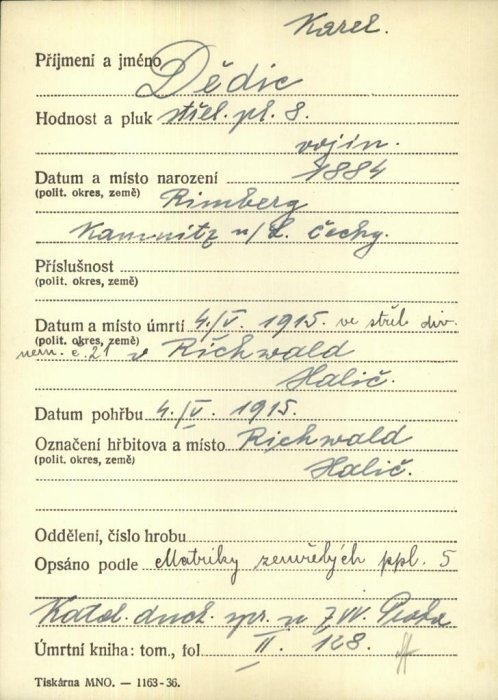 Karel.
Příjmení a jméno Dědic
Hodnost a pluk střel. pl. 8.
vojín.
Datum a místo narození 1884
(polit. okres, země) Rimberg
Kamnitz n/L. Čechy.
Příslušnost
(polit. okres, země)
Datum a místo úmrtí 4./V. 1915. ve střel. div.
(polit. okres, země)
nem. č. 21 v Richwald
Halič.
Datum pohřbu 4./V. 1915.
Označení hřbitova a místo Richwald
(polit. okres, země) Halič.
Oddělení, číslo hrobu
Opsáno podle Matriky zemřelých ppl. 5
Katol. duch. spr. u ZVV. Praha
Úmrtní kniha: tom., fol II. 128.
Tiskárna MNO. — 1163-36.